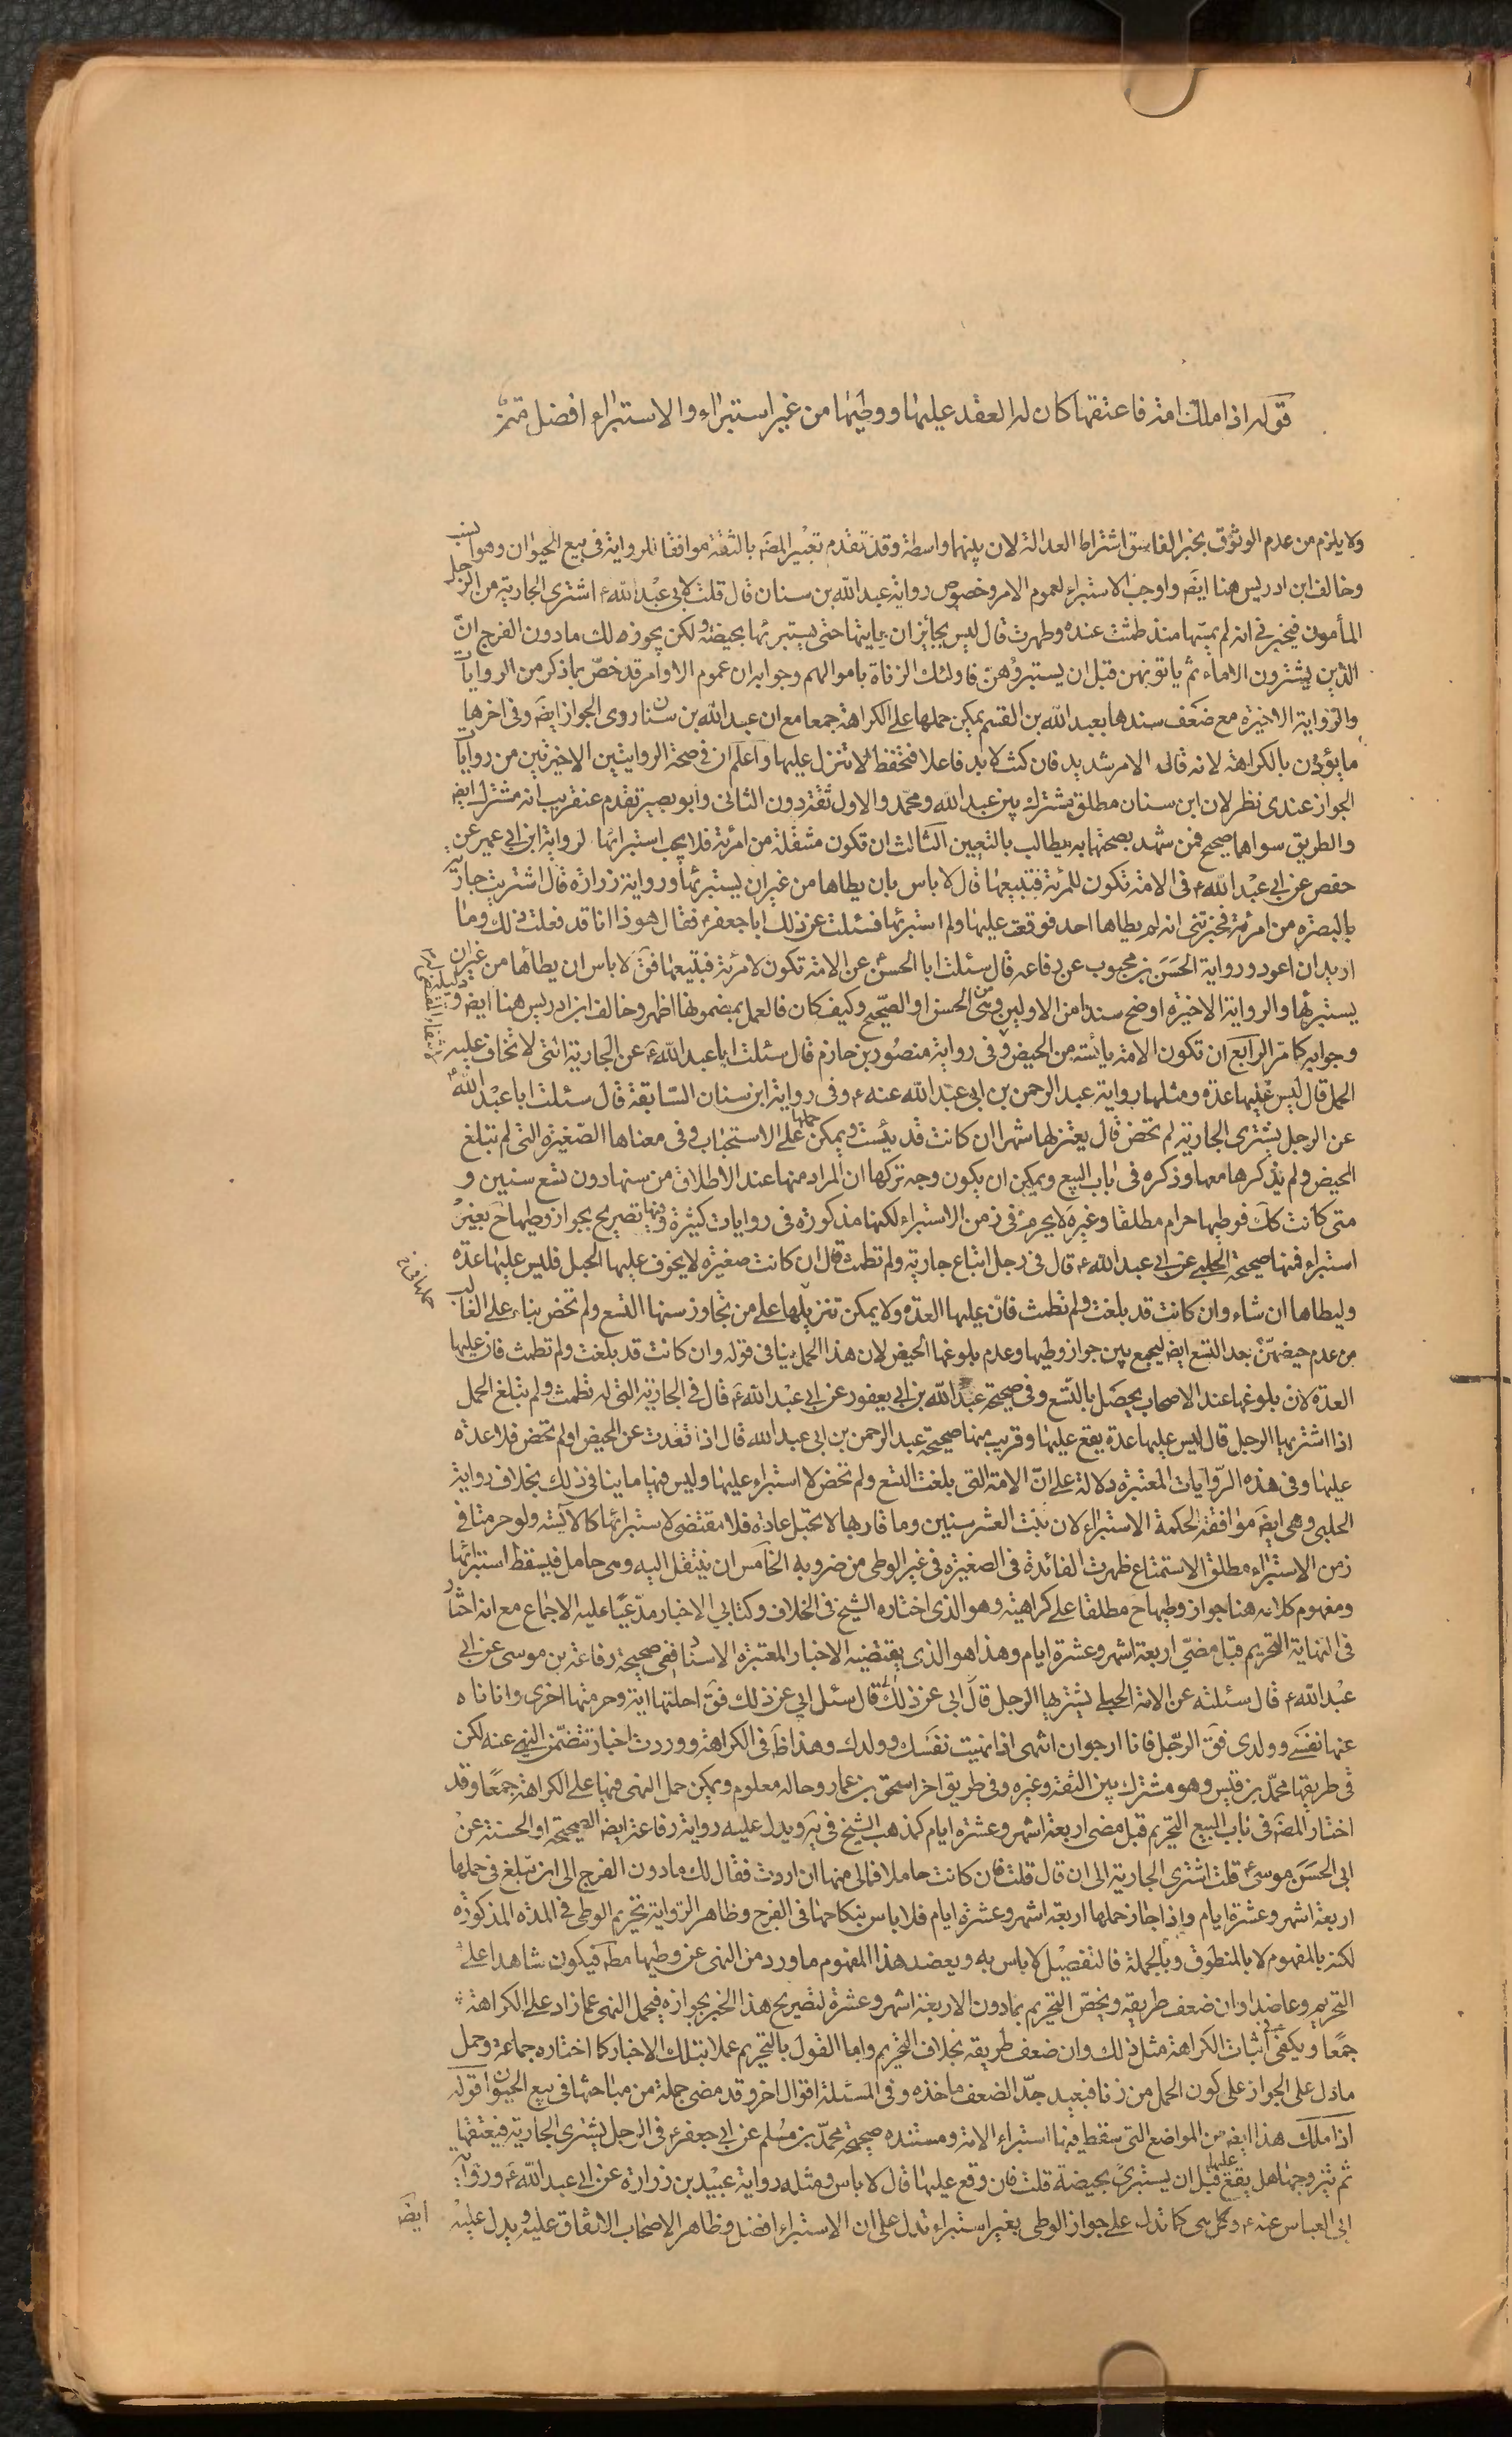 قوله اذا ملك امة فاعتقها كان له العقد عليها ووطئها من غير استبراء والاستبراء افضل
ولا يلزم من عدم الوثوق بخبر الفاسق اشتراط العدالة لان بينهما واسطة وقد تقدم تعبير المصَ بالثقة موافقا للرواية فى بيع الحيوان وهو انسب
وخالف ابن ادريس هنا ايضَ واوجب الاستبراء لعموم الامر وخصوص رواية عبد الله بن سنان قال قلت لابى عبد الله ع اشترى الجارية من الرجل
المأمون فيخبرنى انه لم يمسها منذ طمثت عنده وطهرت قال ليس بجائز ان يأتيها حتى يستبرئها بحيضة ولكن يجوز لك مادون الفرج انّ
الذين يشترون الاماء ثم ياتونهن قبل ان يستبرؤهن فاولئك الزناة باموالهم وجوابه ان عموم الاوامر قد خصّ بما ذكر من الروايات
والرواية الاخيرة مع ضعف سندها بعبد الله بن القسم يمكن حملها على الكراهة جمعا مع ان عبد الله بن سنان روى الجواز ايضَ وفى اخرها
ما يؤذن بالكراهة لانه قال الامر شديد فان كنت لا بد فاعلا فتحفظ لا تنزل عليها واعلم ان فى صحة الروايتين الاخيرتين من روايات
الجواز عندى نظر لان ابن سنان مطلق مشترك بين عبد الله ومحمد والاول ثقة دون الثانى وابو بصير تقدم عنقريب انه مشترك ايضَ
والطريق سواهما صحيح فمن شهد بصحتها به يطالب بالتعيين الثالث ان تكون منتقلة من امرئة فلا يجب استبرائها لرواية ابن ابى عمير عن
حفص عن ابى عبد الله ع فى الامة تكون للمرئة فتبيعها قال لا باس بان يطاها من غير ان يستبرئها ورواية زرارة قال اشتريت جارية
بالبصرة من امرئة فخبرتنى انه لم يطاها احد فوقعت عليها ولم استبرئها فسئلت عن ذلك ابا جعفر ع فقال هو ذا انا قد فعلت ذلك وما
اريد ان اعود ورواية الحسن بن محبوب عن رفاعه قال سئلت ابا الحسن ع عن الامة تكون لامرئة فتبيعها فقَ لا باس ان يطأها من غير ان
يستبرئها والرواية الاخيرة اوضح سندا من الاوليين وهى من الحسن او الصحيح وكيف كان فالعمل بمضمونها اظهر وخالف ابن ادريس هنا ايضَ و
وجوابه كما مر الرابع ان تكون الامة يائسة من الحيض وفى رواية منصور بن حازم قال سئلت ابا عبد الله ع عن الجارية التى لا تخاف عليها
الحمل قال ليس عليها عدة ومثلها رواية عبد الرحمن بن ابى عبد الله عنه ع وفى رواية ابن سنان السابقة قال سئلت ابا عبد الله ع
عن الرجل يشترى الجارية لم تحض قال يعتزلها شهرا ان كانت قد يئست ويمكن حملها على الاستحباب وفى معناها الصغيرة التى لم تبلغ
الحيض ولم يذكرها معها وذكره فى باب البيع ويمكن ان يكون وجه تركها ان المراد منها عند الاطلاق من سنها دون تسع سنين و
متى كانت كك فوطيها حرام مطلقا وغيره لا يحرم فى زمن الاستبراء لكنها مذكورة فى روايات كثيرة وفيها تصريح بجواز وطيها ح بغير
استبراء فمنها صحيحة الحلبى عن ابى عبد الله ع قال فى رجل ابتاع جارية ولم تطمث قال ان كانت صغيرة لا يخوف عليها الحبل فليس عليها عدة
وليطاها ان شاء وان كانت قد بلغت ولم تطمث فان عليها العدة ولا يمكن تنزيلها على من تجاوز سنها التسع ولم تحض بناء على الغالب
من عدم حيضهن بعد التسع ايضَ ليجمع بين جواز وطيها وعدم بلوغها الحيض لان هذا الحمل ينافى قوله وان كانت قد بلغت ولم تطمث فان عليها
العدة لان بلوغها عند الاصحاب يحصل بالتسع وفى صحيحة عبد الله بن ابى يعفور عن ابى عبد الله ع قال فى الجارية التى لم تطمث ولم تبلغ الحمل
اذا اشتريها الرجل قال ليس عليها عدة يقع عليها وقريب منها صحيحة عبد الرحمن بن ابى عبد الله قال اذا قعدت عن الحيض او لم تحض فلا عدة
عليها وفى هذه الروايات المعتبرة دلالة على انّ الامة التى بلغت التسع ولم تحض لا استبراء عليها وليس فيها ما ينافى ذلك بخلاف رواية
الحلبى وهى ايضَ موافقة لحكمة الاستبراء لان بنت العشر سنين وما قاربها لا تحبل عادة فلا مقتضى لاستبرائها كالآيسة ولو حرمنا فى
زمن الاستبراء مطلق الاستمتاع ظهرت الفائدة فى الصغيرة فى غير الوطى من ضروبه الخامس ان ينتقل اليه وهى حامل فيسقط استبرائها
ومفهوم كلامه هنا جواز وطيها ح مطلقا على كراهية وهو الذى اختاره الشيخ فى الخلاف وكتابى الاخبار مدّعيا عليه الاجماع مع انه اختار
فى النهاية التحريم قبل مضى اربعة اشهر وعشرة ايام وهذا هو الذى يقتضيه الاخبار المعتبرة الاسناد ففى صحيحة رفاعة بن موسى عن ابى
عبد الله ع قال سئلته عن الامة الحبلى يشتريها الرجل قال ابى عن ذلك قال سئل ابى عن ذلك فقَ احلتها اية وحرمتها اخرى وانا ناه
عنها نفسى وولدى فقَ الرجل فانا ارجو ان انتهى اذا نهيت نفسك وولدك وهذا ظَ فى الكراهة ووردت اخبار تتضمن النهى عنه لكن
فى طريقها محمد بن قيس وهو مشترك بين الثقة وغيره وفى طريق اخر اسحق بن عمار وحاله معلوم ويمكن حمل النهى فيها على الكراهة جمعا وقد
اختار المصَ فى باب البيع التحريم قبل مضى اربعة اشهر وعشرة ايام كمذهب الشيخ فى يَه ويدل عليه رواية رفاعة ايضَ الصحيحة او الحسنة عن
ابى الحسن موسى ع قلت اشترى الجارية الى ان قال قلت فان كانت حاملا فمالى منها ان اردت فقال لك مادون الفرج الى ان تبلغ فى حملها
اربعة اشهر وعشرة ايام واذا جاز حملها اربعة اشهر وعشرة ايام فلا باس بنكاحها فى الفرج وظاهر الرواية تحريم الوطى فى المدة المذكورة
لكنه بالمفهوم لا بالمنطوق وبالجملة فالتفصيل لا باس به ويعضد هذا المفهوم ما ورد من النهى عن وطيها مطَ فيكون شاهدا على
التحريم وعاضدا وان ضعف طريقه ويخص التحريم بمادون الاربعة اشهر وعشرة لتصريح هذا الخبر بجوازه فيحمل النهى عما زاد على الكراهة
جمعا ويكفى فى اثبات الكراهة مثل ذلك وان ضعف طريقه بخلاف التحريم واما القول بالتحريم عملا بتلك الاخبار كما اختاره جماعة وحمل
ما دل على الجواز على كون الحمل من زنا فبعيد جدّا لضعف ماخذه وفى المسئلة اقوال اخر وقد مضى جملة من مباحثها فى بيع الحيوان قوله
اذا ملك هذا ايضَ من المواضع التى سقط فيها استبراء الامة ومستنده صحيحة محمد بن مسلم عن ابى جعفر ع فى الرجل يشترى الجارية فيعتقها
ثم يتزوجها هل يقع عليها قبل ان يستبرئ بحيضة قلت فان وقع عليها قال لا باس ومثله رواية عبيد بن زرارة عن ابى عبد الله ع ورواية
ابى العباس عنه ع وكل هى كما تدل على جواز الوطى بغير استبراء تدل على ان الاستبراء افضل وظاهر الاصحاب الاتفاق عليه ويدل عليه
ايضَ